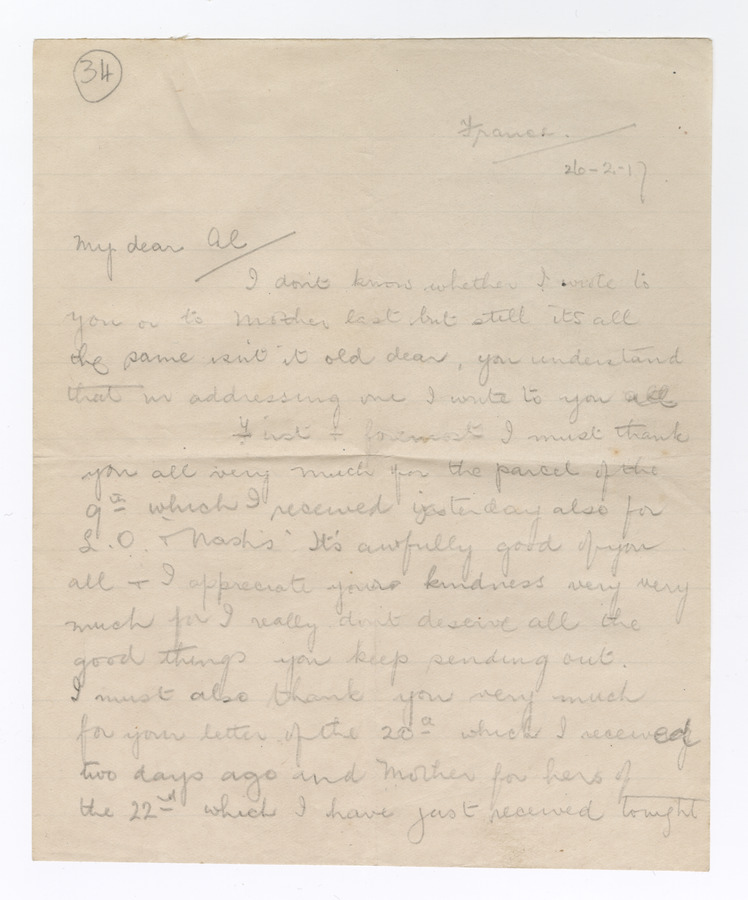 34
France.
26-2-17
My dear Al
I don't know whether I wrote to
you or to Mother last but still it's all
the same isn't it old dear, you understand
that in addressing one I write to you all
First & foremost I must thank
you all very much for the parcel of the
9th which I received yesterday also for
L.O. & Nash's. It's awfully good of you
all & I appreciate your kindness very very
much for I really don't deserve all the
good things you keep sending out.
I must also thank you very much
for your letter of the 20th which I received
two days ago and Mother for hers of
the 22nd which I have just received tonight